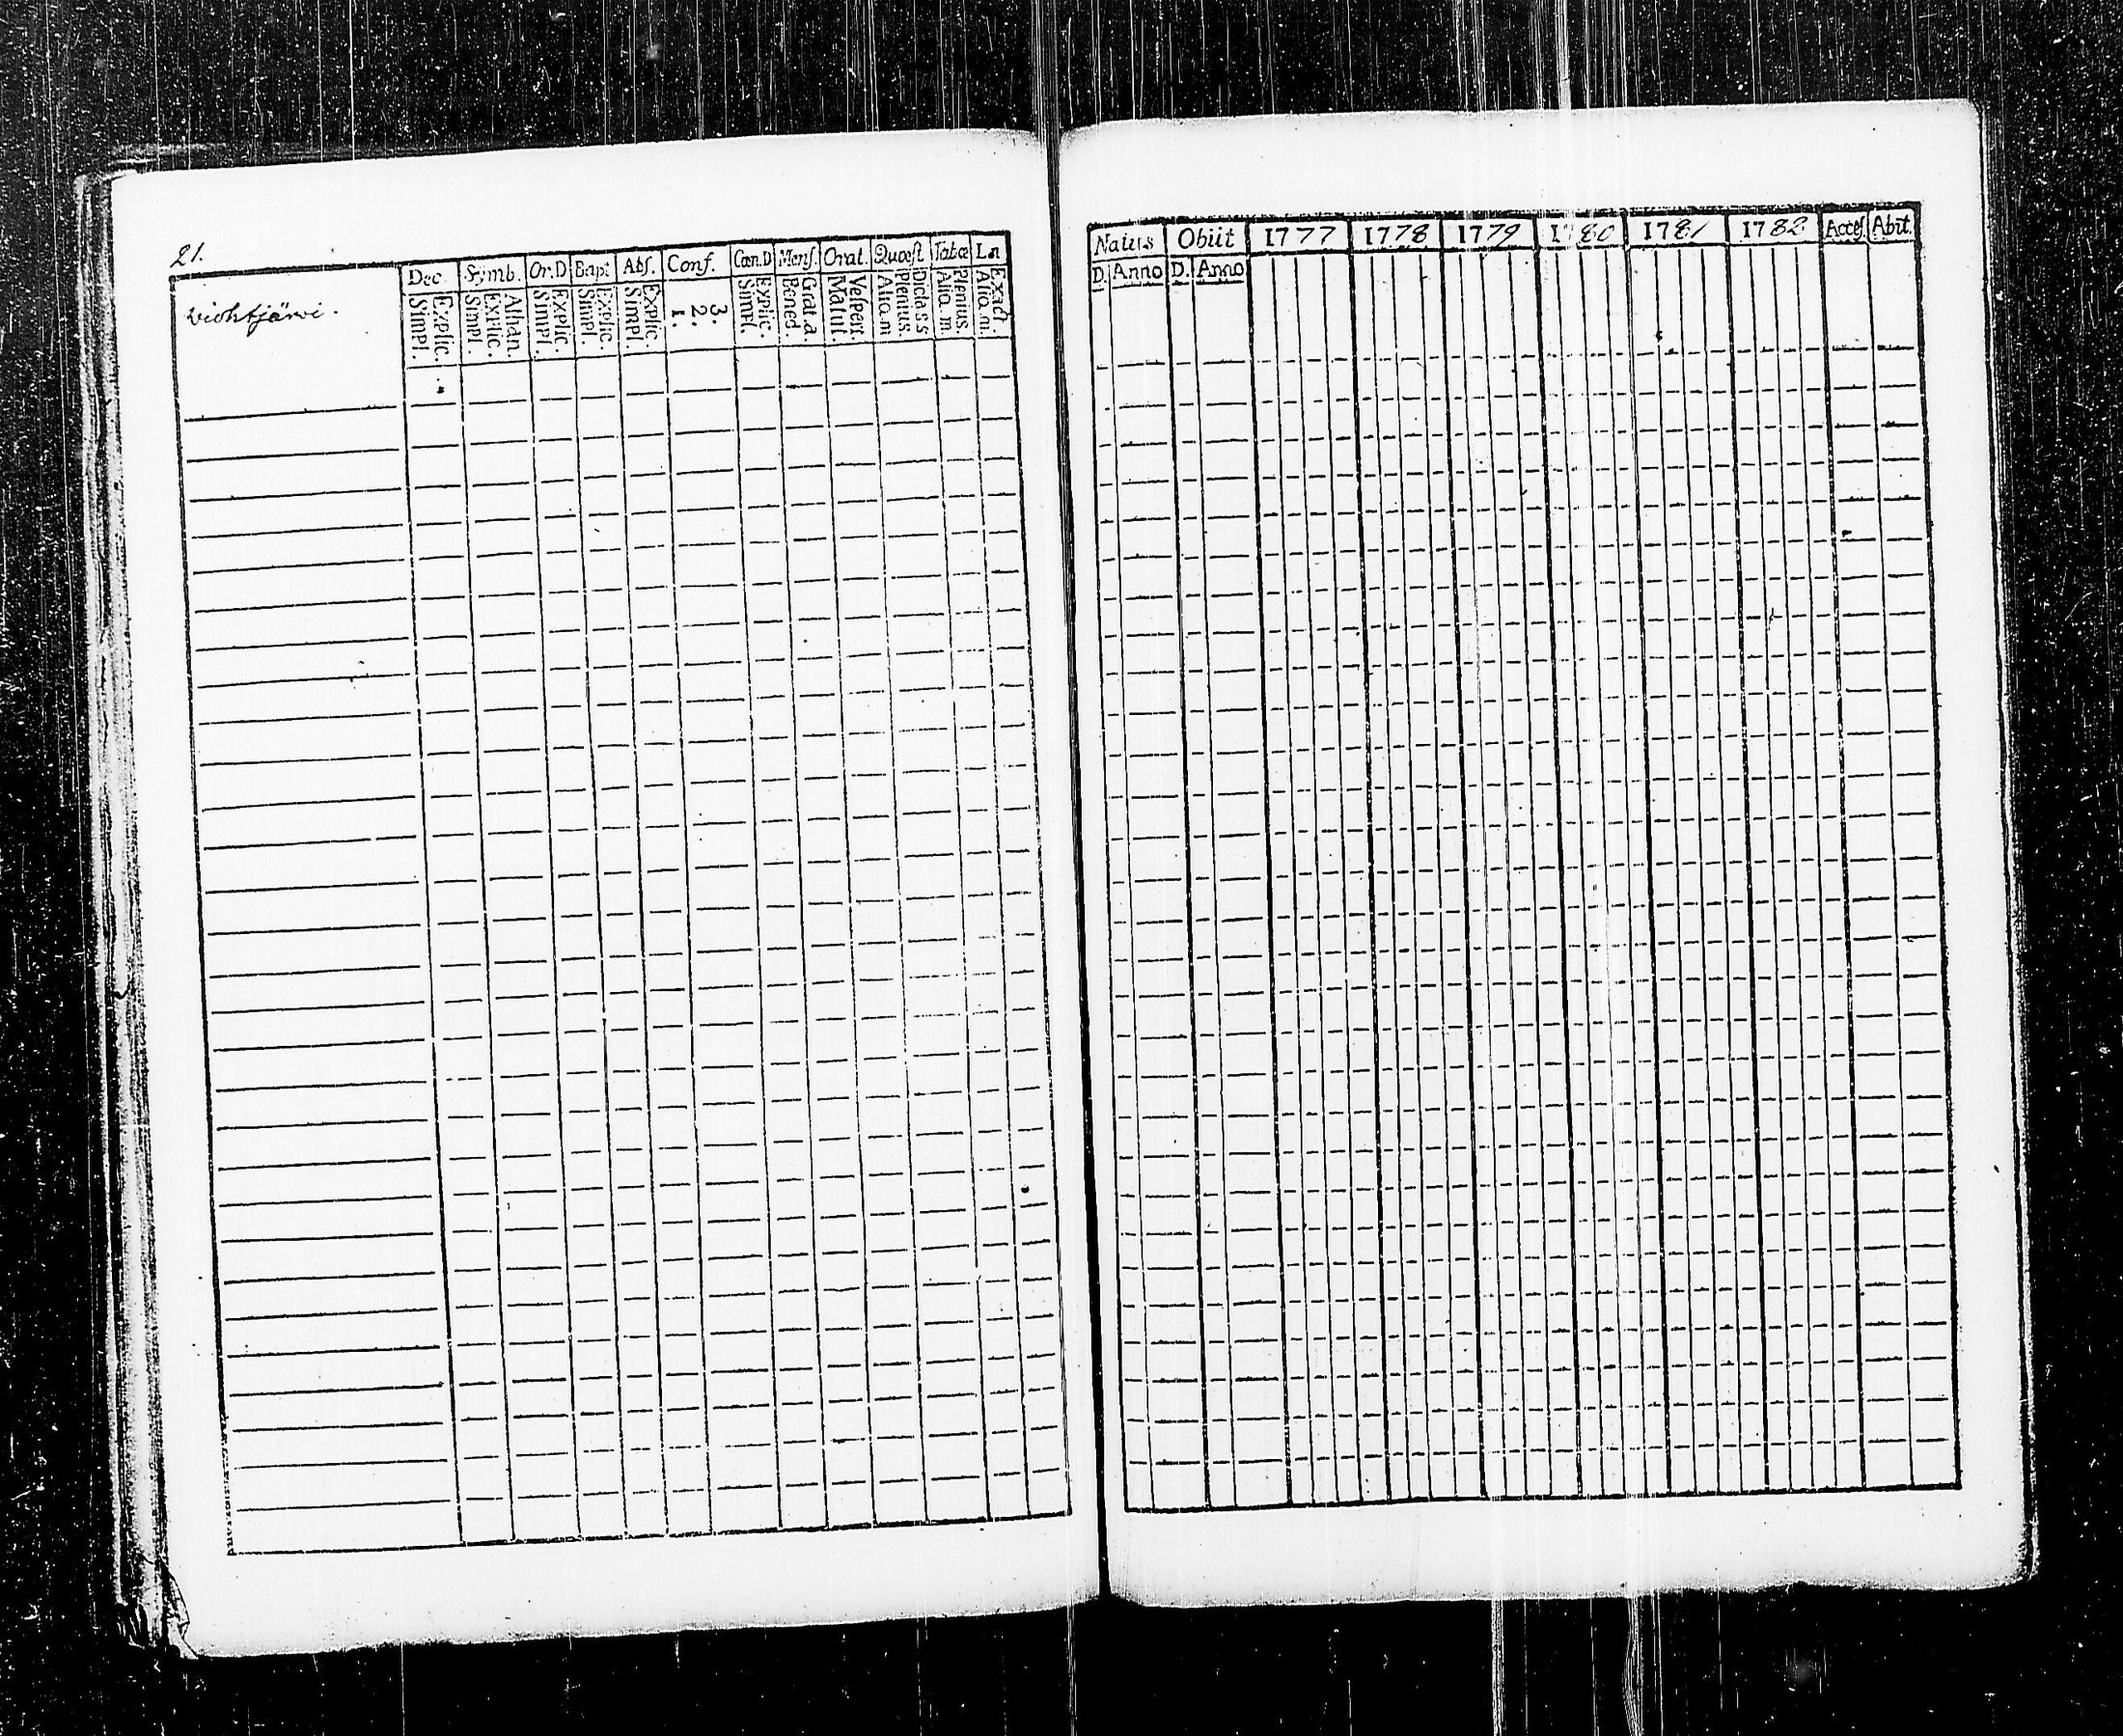 21.
Dec Symb. Or.D Bapt Abs. Conf. Cœn.D Mens. Orat. Quæst Tabæ Ln
viohtjärvi.
Simpl. Explic. Simpl. Explic. Athan. Simpl. Explic. Simpl. Explic. Simpl. Explic. 1. 2. 3. Simpl. Explic. Bened. Grat.a. Matut. Vespert. Aliq.m Plenius. Dicta.ss Aliq.m. Plenius. Aliq.m. Exact.
Natus Obiit 1777 1778 1779 1780 1781 1782 Access. Abit.
D. Anno D. Anno